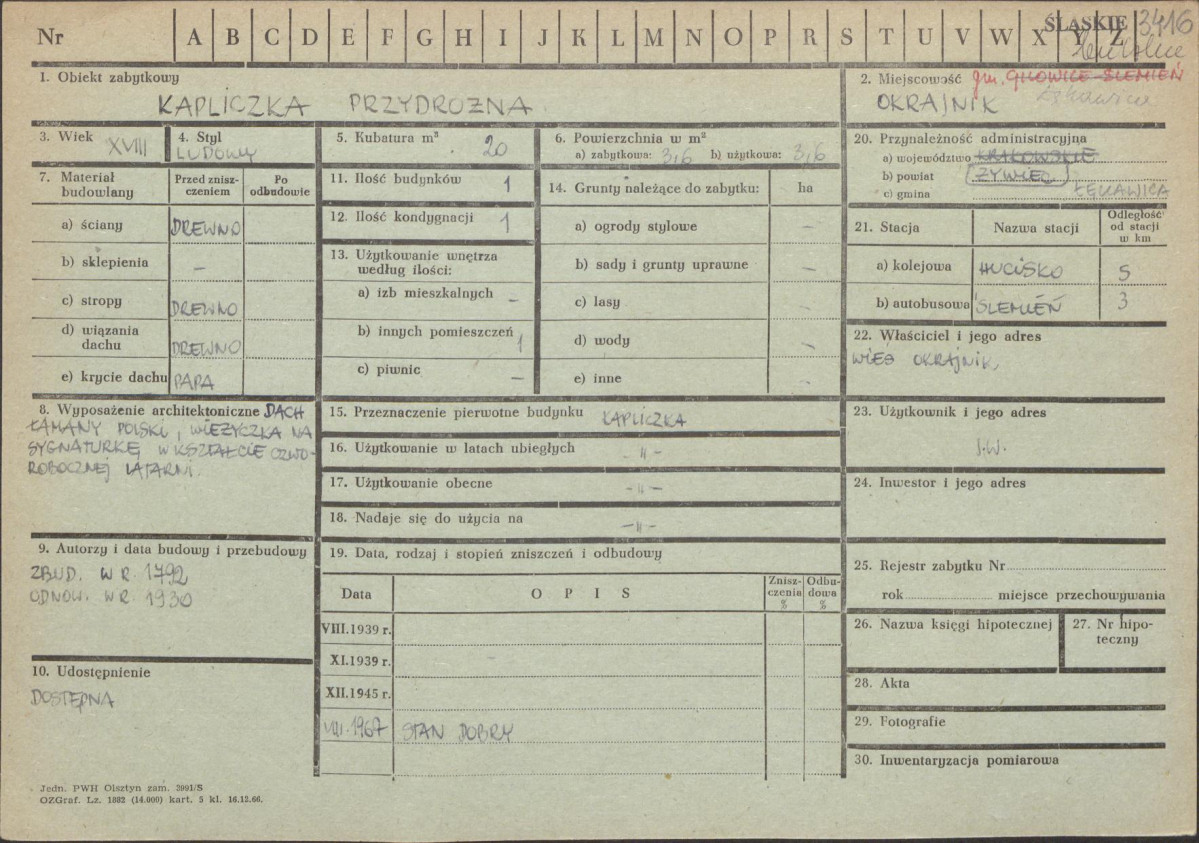 Nr A B C D E F G H I J K L M N O P R S T U V W X Y Z
ŚLĄSKIE 3416
1. Obiekt zabytkowy
KAPLICZKA PRZYDROŻNA
2. Miejscowość gm. GILOWICE-ŚLEMIEŃ
OKRAJNIK Łękawica
3. Wiek XVIII
4. Styl
LUDOWY
5. Kubatura m³
20
6. Powierzchnia w m²
a) zabytkowa: 3,6 b) użytkowa: 3,6
7. Materiał budowlany
Przed zniszczeniem
Po odbudowie
a) ściany DREWNO
b) sklepienia –
c) stropy DREWNO
d) wiązania dachu DREWNO
e) krycie dachu PAPA
8. Wyposażenie architektoniczne DACH
ŁAMANY POLSKI, WIEŻYCZKA NA
SYGNATURKĘ W KSZTAŁCIE CZWO-
ROBOCZNEJ LATARNI.
9. Autorzy i data budowy i przebudowy
ZBUD. W R. 1792
ODNOW. W R. 1930
10. Udostępnienie
DOSTĘPNA
11. Ilość budynków 1
12. Ilość kondygnacji 1
13. Użytkowanie wnętrza
według ilości:
a) izb mieszkalnych –
b) innych pomieszczeń 1
c) piwnic –
14. Grunty należące do zabytku: ha
a) ogrody stylowe –
b) sady i grunty uprawne –
c) lasy –
d) wody –
e) inne -
15. Przeznaczenie pierwotne budynku KAPLICZKA
16. Użytkowanie w latach ubiegłych -"-
17. Użytkowanie obecne -"-
18. Nadaje się do użycia na -"-
19. Data, rodzaj i stopień zniszczeń i odbudowy
Data O P I S Zniszczenia % Odbudowa %
VIII.1939 r.
XI.1939 r.
XII.1945 r.
VIII.1967 STAN DOBRY
20. Przynależność administracyjna
a) województwo KRAKOWSKIE
b) powiat ŻYWIEC
c) gmina ŁĘKAWICA
21. Stacja Nazwa stacji Odległość od stacji w km
a) kolejowa HUCISKO 5
b) autobusowa ŚLEMIEŃ 3
22. Właściciel i jego adres
WIEŚ OKRAJNIK,
23. Użytkownik i jego adres
J.W.
24. Inwestor i jego adres
25. Rejestr zabytku Nr
rok miejsce przechowywania
26. Nazwa księgi hipotecznej
27. Nr hipo-
teczny
28. Akta
29. Fotografie
30. Inwentaryzacja pomiarowa
Jedn. PWH Olsztyn zam. 3991/S
OZGraf. Lz. 1882 (14.000) kart. 5 kl. 16.12.66.